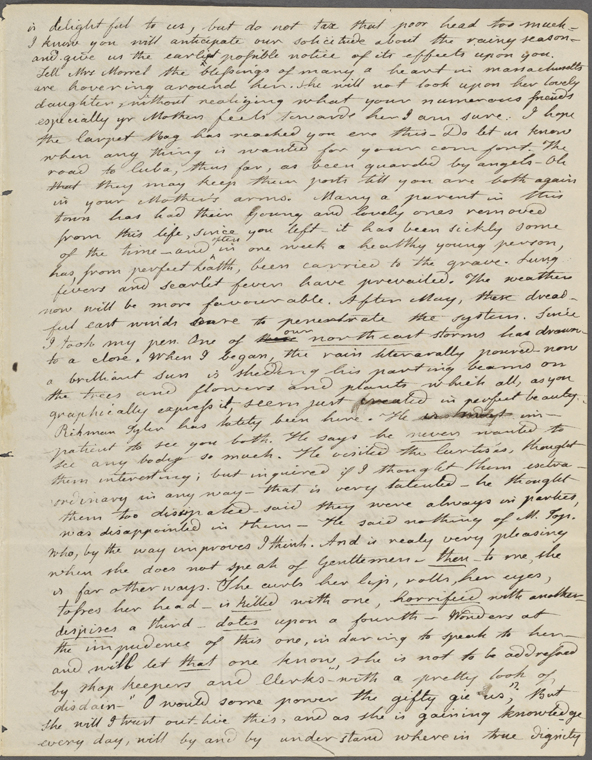 is delightful to us, but do not tax that poor head too much -
I know you will anticipate our solicitude about the rainy season -
and give us the earlst possible notice of its effects upon you.
Tell Mrs Morrel the blessings of many a heart in massachusetts
are hovering around her. She will not look upon her lovely
daughter, without realizing what your numerous friends
especially yr Mother feels towards her I am sure. I hope
the Carpet Bag has reached you ere this - Do let us know
when any thing is wanted for your comfort. The
road to Cuba, thus far, as been guarded by angels - Oh
that they may keep them posts till you are both again
in your Mother's arms. Many a parent in this
town has had their young and lovely ones removed
from this life, since you left - it has been sickly some
of the time - and often in one week a healthy young person,
has, from perfect health, been carried to the grave. Lung
fevers and scarlet fever have prevailed. The weather
now will be more favourable. After May, these dread-
ful east winds cease to penetrate the system. Since
I took my pen. One of our north east storms has drawn
to a close. When I began, the rain literarally poured - now
a brilliant sun is shedding his parting beams on
the trees and flowers and plants which all, as you
graphically express it, seem just created in perfect beauty.
Rikman Tyler has lately been here. He is im-
patient to see you both. He says he never wanted to
see any body so much. He visited the Curtises, thought
them interesting; but inquired if I thought them extra-
ordinary in any way - that is very talented - he thought
them too dissipated - said they were always in parties,
was disappointed in them - He said nothing of M. Top.
who, by the way improves I think. And is realy very pleasing
when she does not speak of Gentlemen - then to one, she
is far otherways. She curls her lips, rolls her eyes,
tosses her head - is killed with one, horrified with another -
despises a third - dotes upon a fourth - Wonders at
the impudence of this one, in daring to speak to her -
and will let that one know, she is not to be addressed
by shop keepers and Clerks - with a pretty look of
disdain - "O would some power the gifty gie us", But
she will I trust outlive this, and as she is gaining knowledge
every day, will by and by understand wherein true dignity